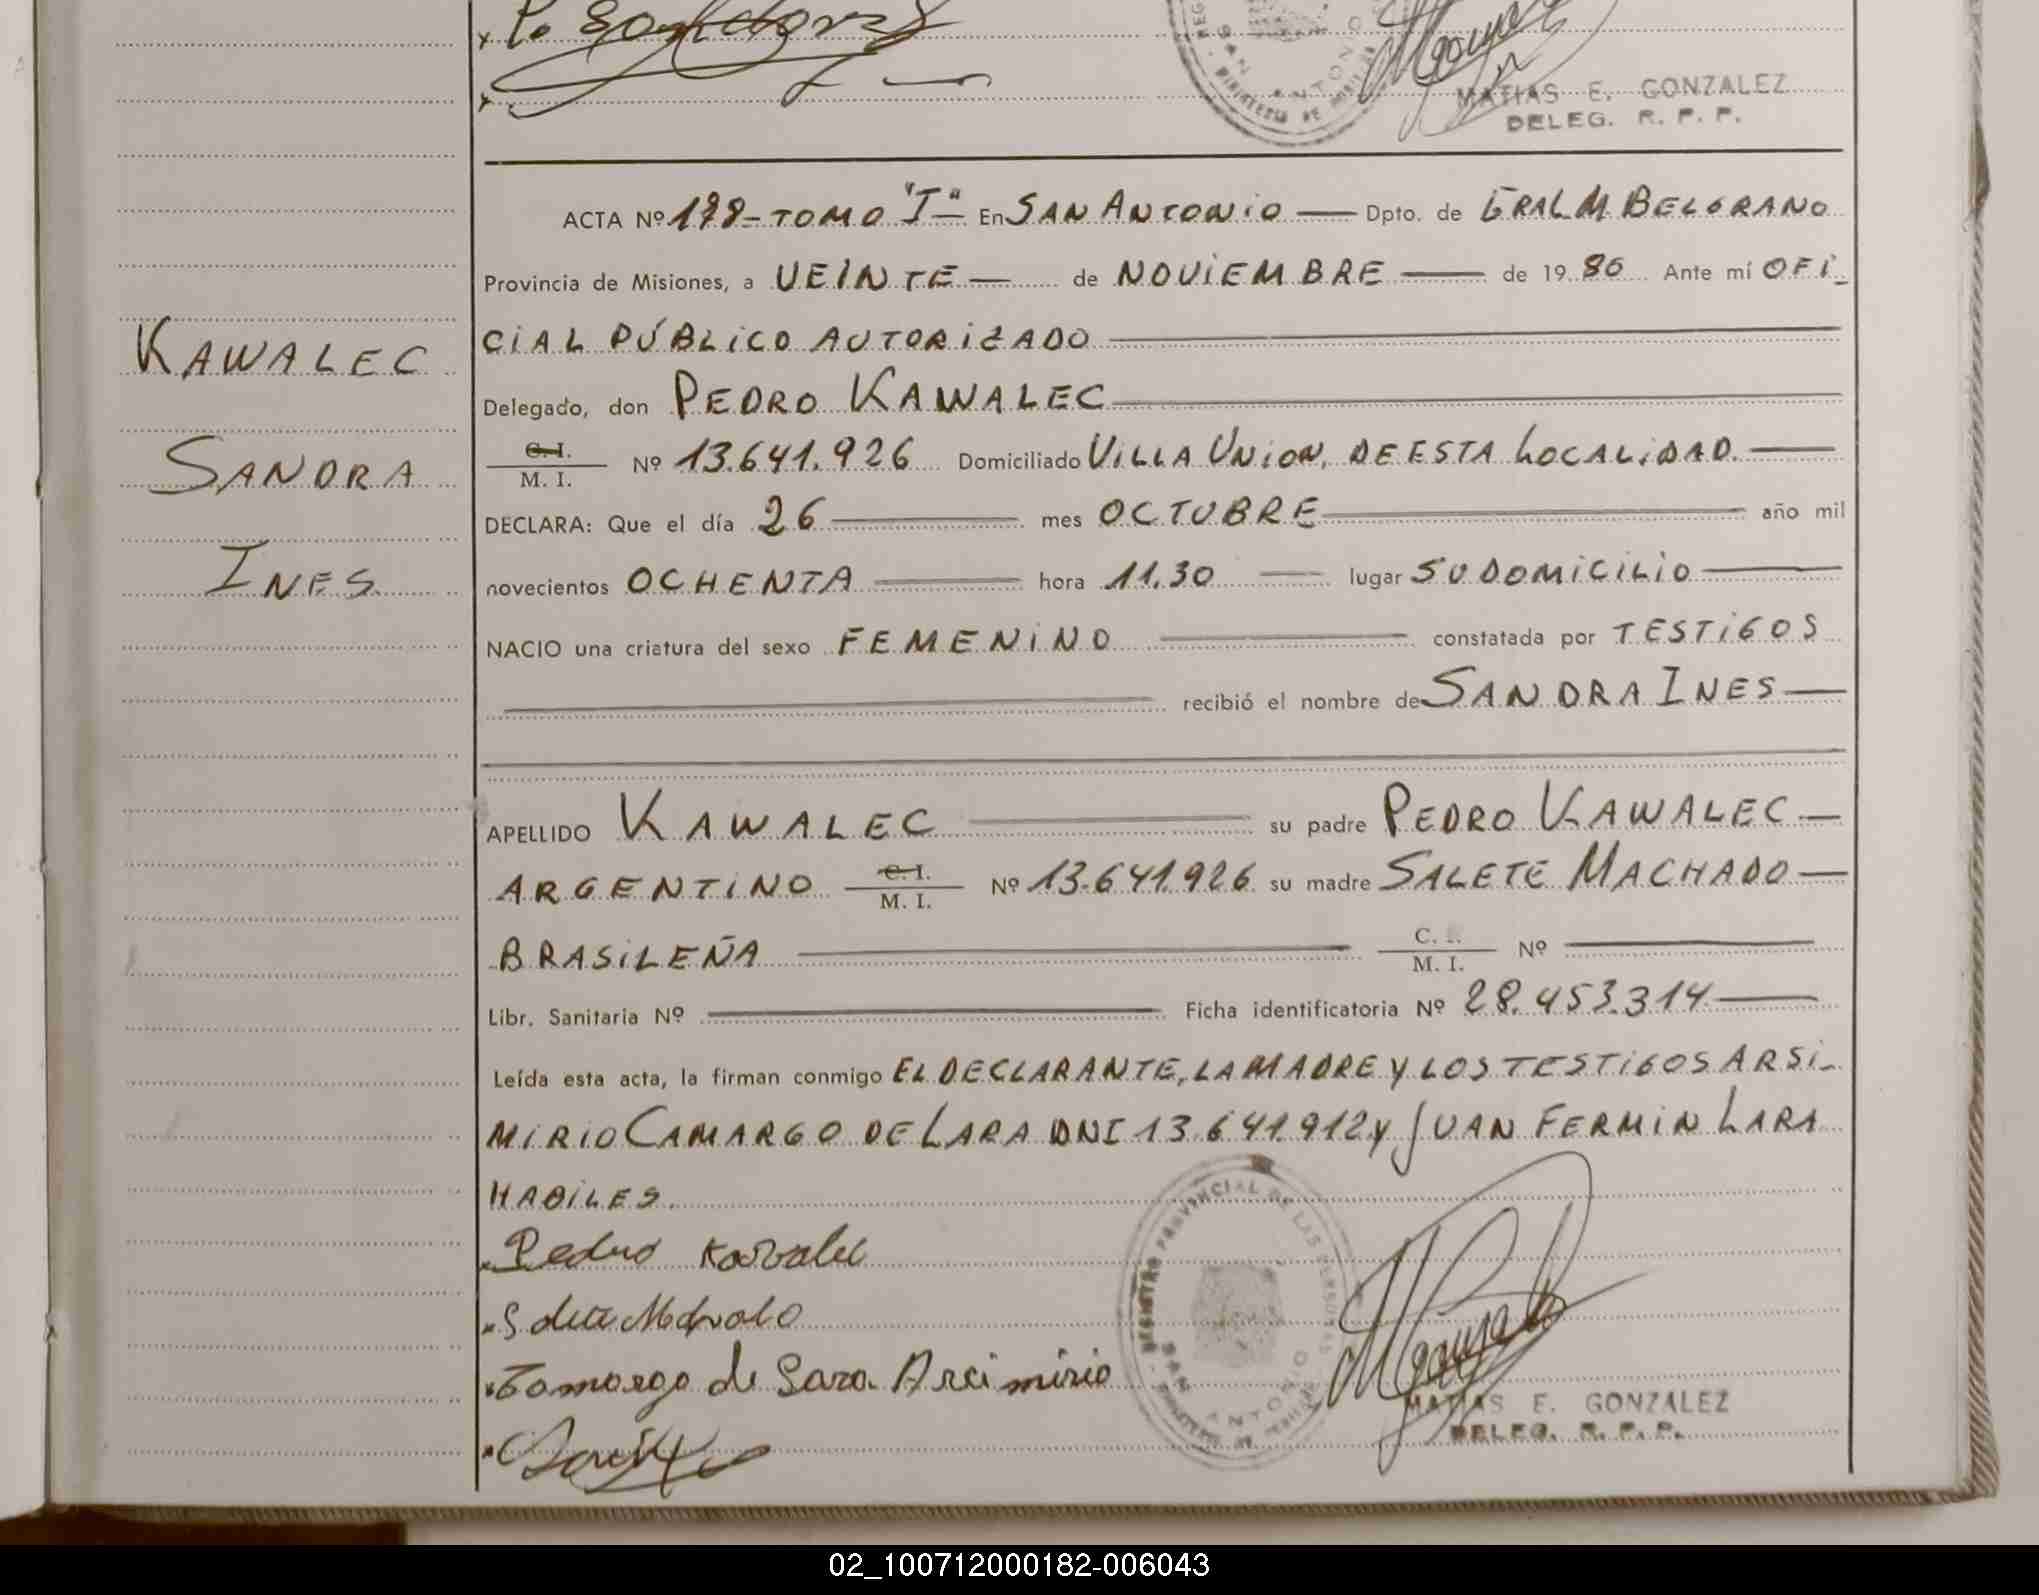 MATIAS E. GONZALEZ
DELEG. R. P. P.
KAWALEC
SANDRA
INES
ACTA Nº 178 - TOMO "I" — En SAN ANTONIO — Dpto. de GRAL M BELGRANO
Provincia de Misiones, a VEINTE — de NOVIEMBRE — de 19 80 Ante mí OFI-
CIAL PÚBLICO AUTORIZADO
Delegado, don PEDRO KAWALEC
C. I.
M. I. Nº 13.641.926 Domiciliado VILLA UNION, DE ESTA LOCALIDAD. —
DECLARA: Que el día 26 — mes OCTUBRE — año mil
novecientos OCHENTA — hora 11.30 — lugar SU DOMICILIO —
NACIO una criatura del sexo FEMENINO — constatada por TESTIGOS
— recibió el nombre de SANDRA INES —
APELLIDO KAWALEC — su padre PEDRO KAWALEC —
ARGENTINO C. I. / M. I. Nº 13.641.926 su madre SALETE MACHADO —
BRASILEÑA — C. I. / M. I. Nº —
Libr. Sanitaria Nº — Ficha identificatoria Nº 28.453.314 —
Leída esta acta, la firman conmigo EL DECLARANTE, LA MADRE Y LOS TESTIGOS ARSI-
MIRIO CAMARGO DE LARA DNI 13.641.912 y JUAN FERMIN LARA
HABILES.
REGISTRO PROVINCIAL DE LAS PERSONAS
SAN ANTONIO
Pedro Kavalec
Camargo de Lara Arcimirio
MATIAS E. GONZALEZ
DELEG. R. P. P.
02_100712000182-006043